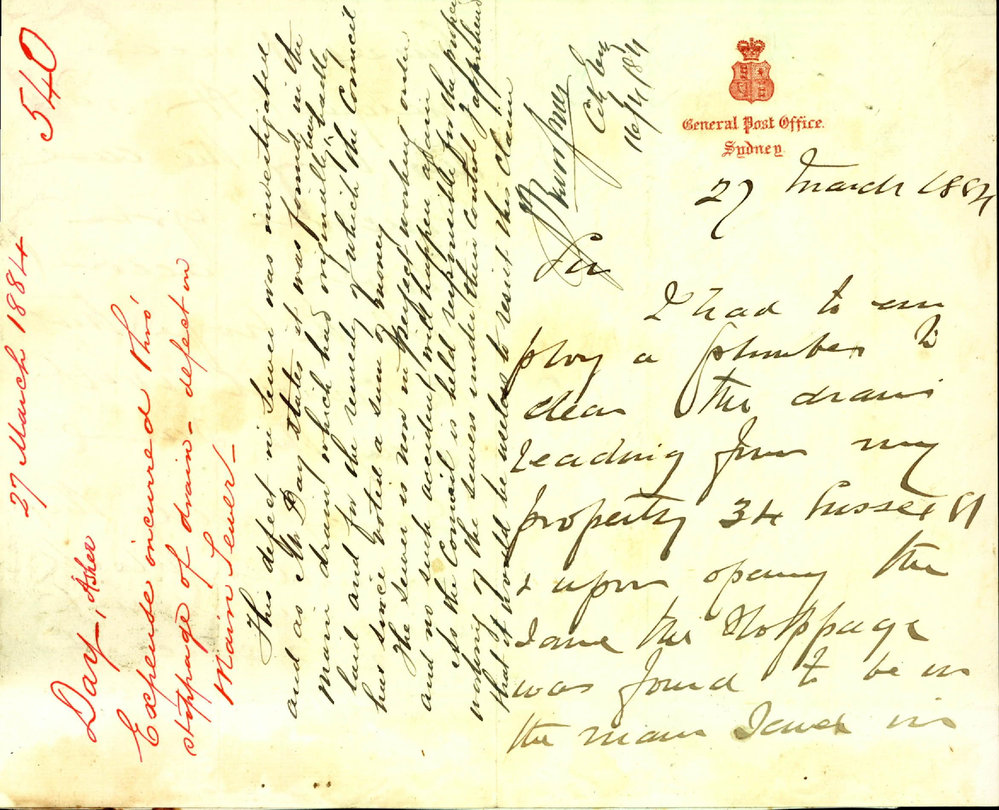 540
27 March 1884
Day, Asher
Expense incurred thro'
stoppage of drain - defect in
Main Sewer -
This defect in Sewer was investigated
and as Mr Day states it was found to be in the
main drain which had originally been badly
laid and for the remedy of which the Council
has since voted a sum of money
The Sewer is now in thorough working order
and no such accident will happen again
As the Council is held responsible for the proper
working of the sewers under their control I apprehend
that it would be useless to resist this claim
City Eng
16/4/84
General Post Office.
Sydney
27 March 1884
Sir
I had to em
ploy a plumber to
clear the drain
leading from my
property 34 Sussex St
& upon opening the
same the stoppage
was found to be in
the main sewer in